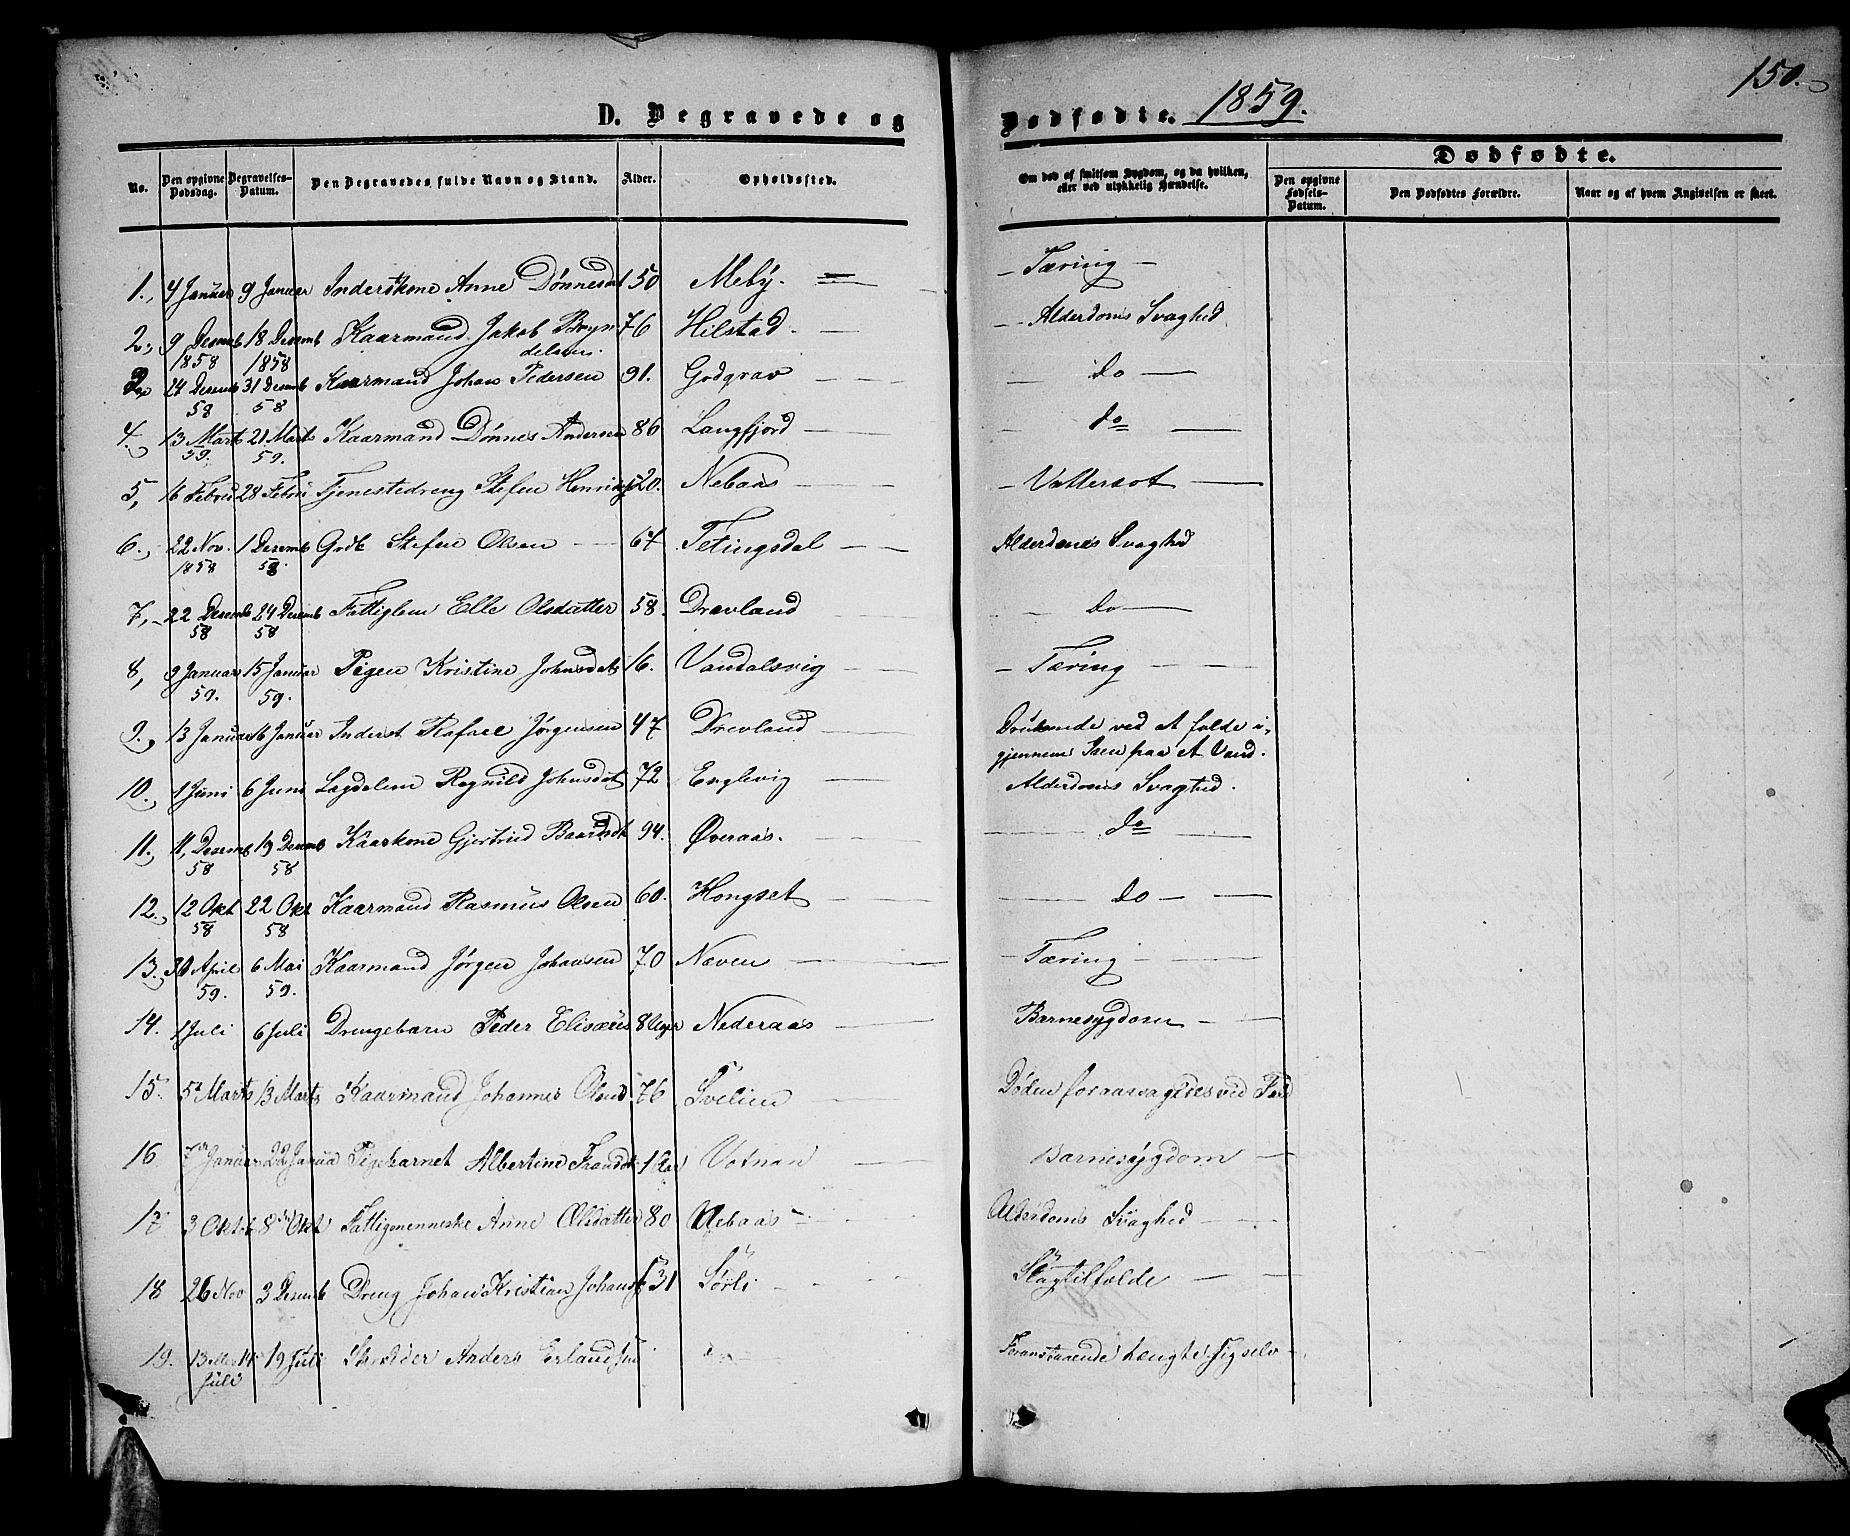 150.
D. Begravede og Dødfødte. 1859.
No. Den opgivne Dødsdag. Begravelses-Datum. Den Begravedes fulde Navn og Stand. Alder. Opholdssted. Om død af smitsom Sygdom, og da hvilken, eller ved ulykkelig Hændelse. Dødfødte.
Den opgivne Fødsels-Datum. Den Dødfødtes Forældre. Naar og af hvem Angivelsen er skeet.
1. 4 Januar 9 Januar Inderstkone Anne Dønnesdat 50 Meby. — Tæring —
2. 9 Desemb 1858 18 Desemb 1858 Kaarmand Jakob Bryndelsen. 76 Hilstad. — Alderdoms Svaghed
24 Desemb 58 31 Desemb 58 Kaarmand Johan Pedersen 91. Godgrav — do —
4. 13 Marts 59. 21 Marts 59. Kaarmand Dønnes Andersen 86 Langfjord — do —
5, 16 Febru 28 Febru Tjenestedreng Stefen Henriks 20. Nebaas — Vattersot —
6. 22 Nov. 1858 1 Desemb 58. Godb Stefen Olsen — 67 Tetingsdal — Alderdoms Svaghed
7, 22 Desemb 58 24 Desemb 58 Fattiglem Elle Olsdatter 58. Drevland — do —
8, 9 Januar 59. 15 Januar 59. Pigen Kristine Johnsdat 16. Vandalsvig — Tæring —
9. 13 Januar 16 Januar Inderst Rafael Jørgensen 47 Drevland — Druknede ved at falde i-
gjennem Isen paa et Vand.
10. 1 Juni 6 Juni Lægdelem Ragnild Johnsdat 72 Englevig — Alderdoms Svaghed.
11. 11, Desemb 58 19 Desemb 58 Kaarkone Gjertrud Baardsdt 94. Øveraas. — do —
12. 12 Okt 58 22 Okt 58 Kaarmand Rasmus Olsen 60. Hongset — do —
13. 30 April 59. 6 Mai 59. Kaarmand Jørgen Johansen 70 Næven — Tæring —
14. 1 Juli 6 Juli Drengebarn Peder Elisæus 8 Uger Nederaas — Barnesygdom —
15. 5t Marts 13 Marts Kaarmand Johannes Olsen 76 Svelien — Døden foraarsagedes ved Fald
16 7 Januar 22 Janua Pigebarnet Albertine 1 Aar Votnan — Barnesygdom —
17 3 Oktob 8 Okt Fattigmenneske Anne Olsdatter 80 Nebaas — Alderdoms Svaghed —
18 26 Nov 3 Desemb Dreng Johan Kristian Johans 31 Sørli — Slagtilfælde —
19. 13 14 Juli 19 Juli Skræder Anders Erlandsen — Foranstaaende hængte sig selv —